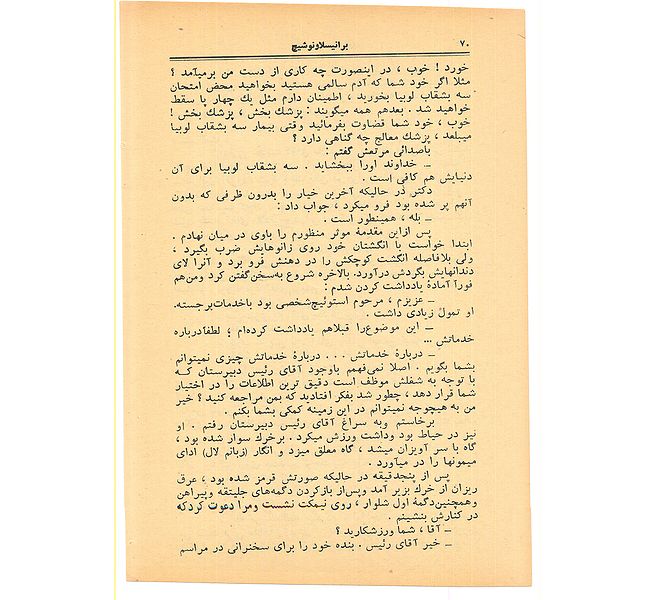 ۷۰
برانیسلاونوشیچ
خورد ! خوب ، در اینصورت چه کاری از دست من برمیآمد ؟
مثلا اگر خود شما که آدم سالمی هستید بخواهید محض امتحان
سه بشقاب لوبیا بخورید ، اطمینان دارم مثل یك چهار پا سقط
خواهید شد . بعدهم همه میگویند : پزشك بخش ، پزشك بخش !
خوب ، خود شما قضاوت بفرمائید وقتی بیمار سه بشقاب لوبیا
میبلعد ، پزشك معالج چه گناهی دارد ؟
باصدائی مرتعش گفتم :
ــ خداوند اورا ببخشاید . سه بشقاب لوبیا برای آن
دنیایش هم کافی است .
دکتر در حالیکه آخرین خیار را بدرون ظرفی که بدون
آنهم پر شده بود فرو میکرد ، جواب داد :
ــ بله ، همینطور است .
پس ازاین مقدمهٔ موثر منظورم را باوی در میان نهادم .
ابتدا خواست با انگشتان خود روی زانوهایش ضرب بگیرد ،
ولی بلافاصله انگشت کوچکش را در دهنش فرو برد و آنرا لای
دندانهایش بگردش درآورد. بالاخره شروع به‌سخن‌گفتن کرد ومن‌هم
فورا آمادهٔ یادداشت کردن شدم :
ــ عزیزم ، مرحوم استوئیچ‌شخصی بود باخدمات‌برجسته.
او تمول زیادی داشت .
ــ این موضوع‌را قبلاهم یادداشت کرده‌ام ؛ لطفادرباره
خدماتش ...
ــ دربارهٔ خدماتش . . . دربارهٔ خدماتش چیزی نمیتوانم
بشما بگویم . اصلا نمی‌فهمم باوجود آقای رئیس دبیرستان که
با توجه به شغلش موظف است دقیق ترین اطلاعات را در اختیار
شما قرار دهد ، چطور شد بفکر افتادید که بمن مراجعه کنید ؟ خیر
من به هیچوجه نمیتوانم در این زمینه کمکی بشما بکنم .
برخاستم وبه سراغ آقای رئیس دبیرستان رفتم . او
نیز در حیاط بود وداشت ورزش میکرد . برخرك سوار شده بود ،
گاه با سر آویزان میشد ، گاه معلق میزد و انگار (زبانم لال) ادای
میمونها را در میآورد .
پس از پنجدقیقه در حالیکه صورتش قرمز شده بود ، عرق
ریزان از خرك بزیر آمد وپس‌از بازکردن دگمه‌های جلیتقه وپیراهن
وهمچنین‌دگمهٔ اول شلوار ، روی نیمکت نشست ومرا دعوت کردکه
در کنارش بنشینم .
ــ آقا ، شما ورزشکارید ؟
ــ خیر آقای رئیس . بنده خود را برای سخنرانی در مراسم